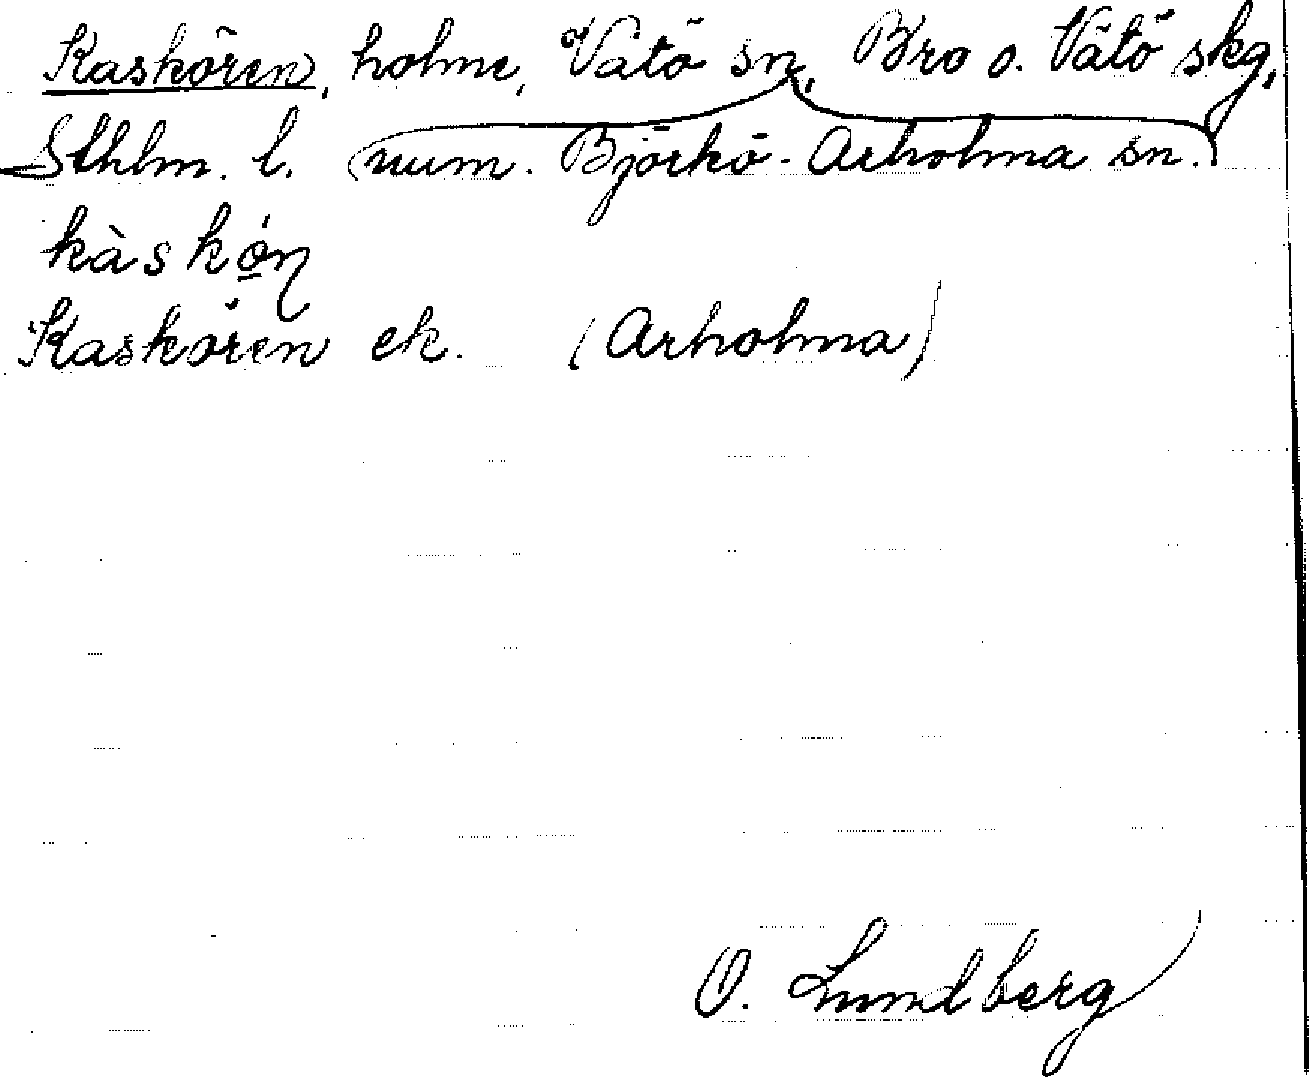 Kaskören, holme, Vätö sn, Bro o. Vätö skg,
Sthlm. l. (num. Björkö-Arholma sn.)
kàskö́n
Kaskören ek. (Arholma)
O. Lundberg